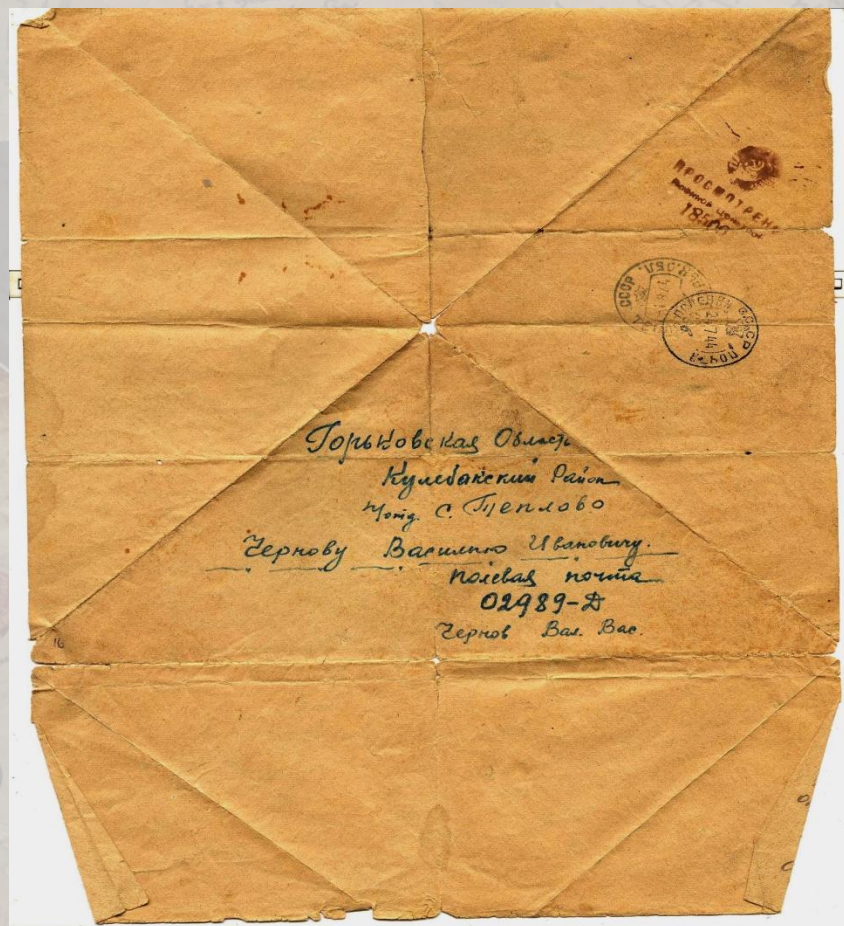 ПРОСМОТРЕНО
Военной Цензурой
18500
СССР
ПОЧТА
Горьковская Область
Кулебакский Район
п/отд. С. Теплово
Чернову Василию Ивановичу.
полевая почта
02989-Д
Чернов Вал. Вас.
16